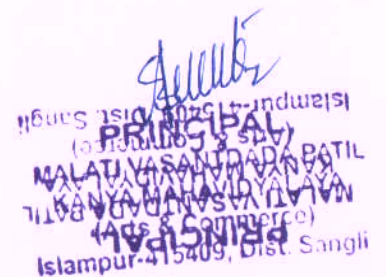 PRINCIPAL
MALATI VASANTDADA PATIL
KANYA MAHAVIDYALAYA
(Arts & Commerce)
Islampur-415409, Dist. Sangli